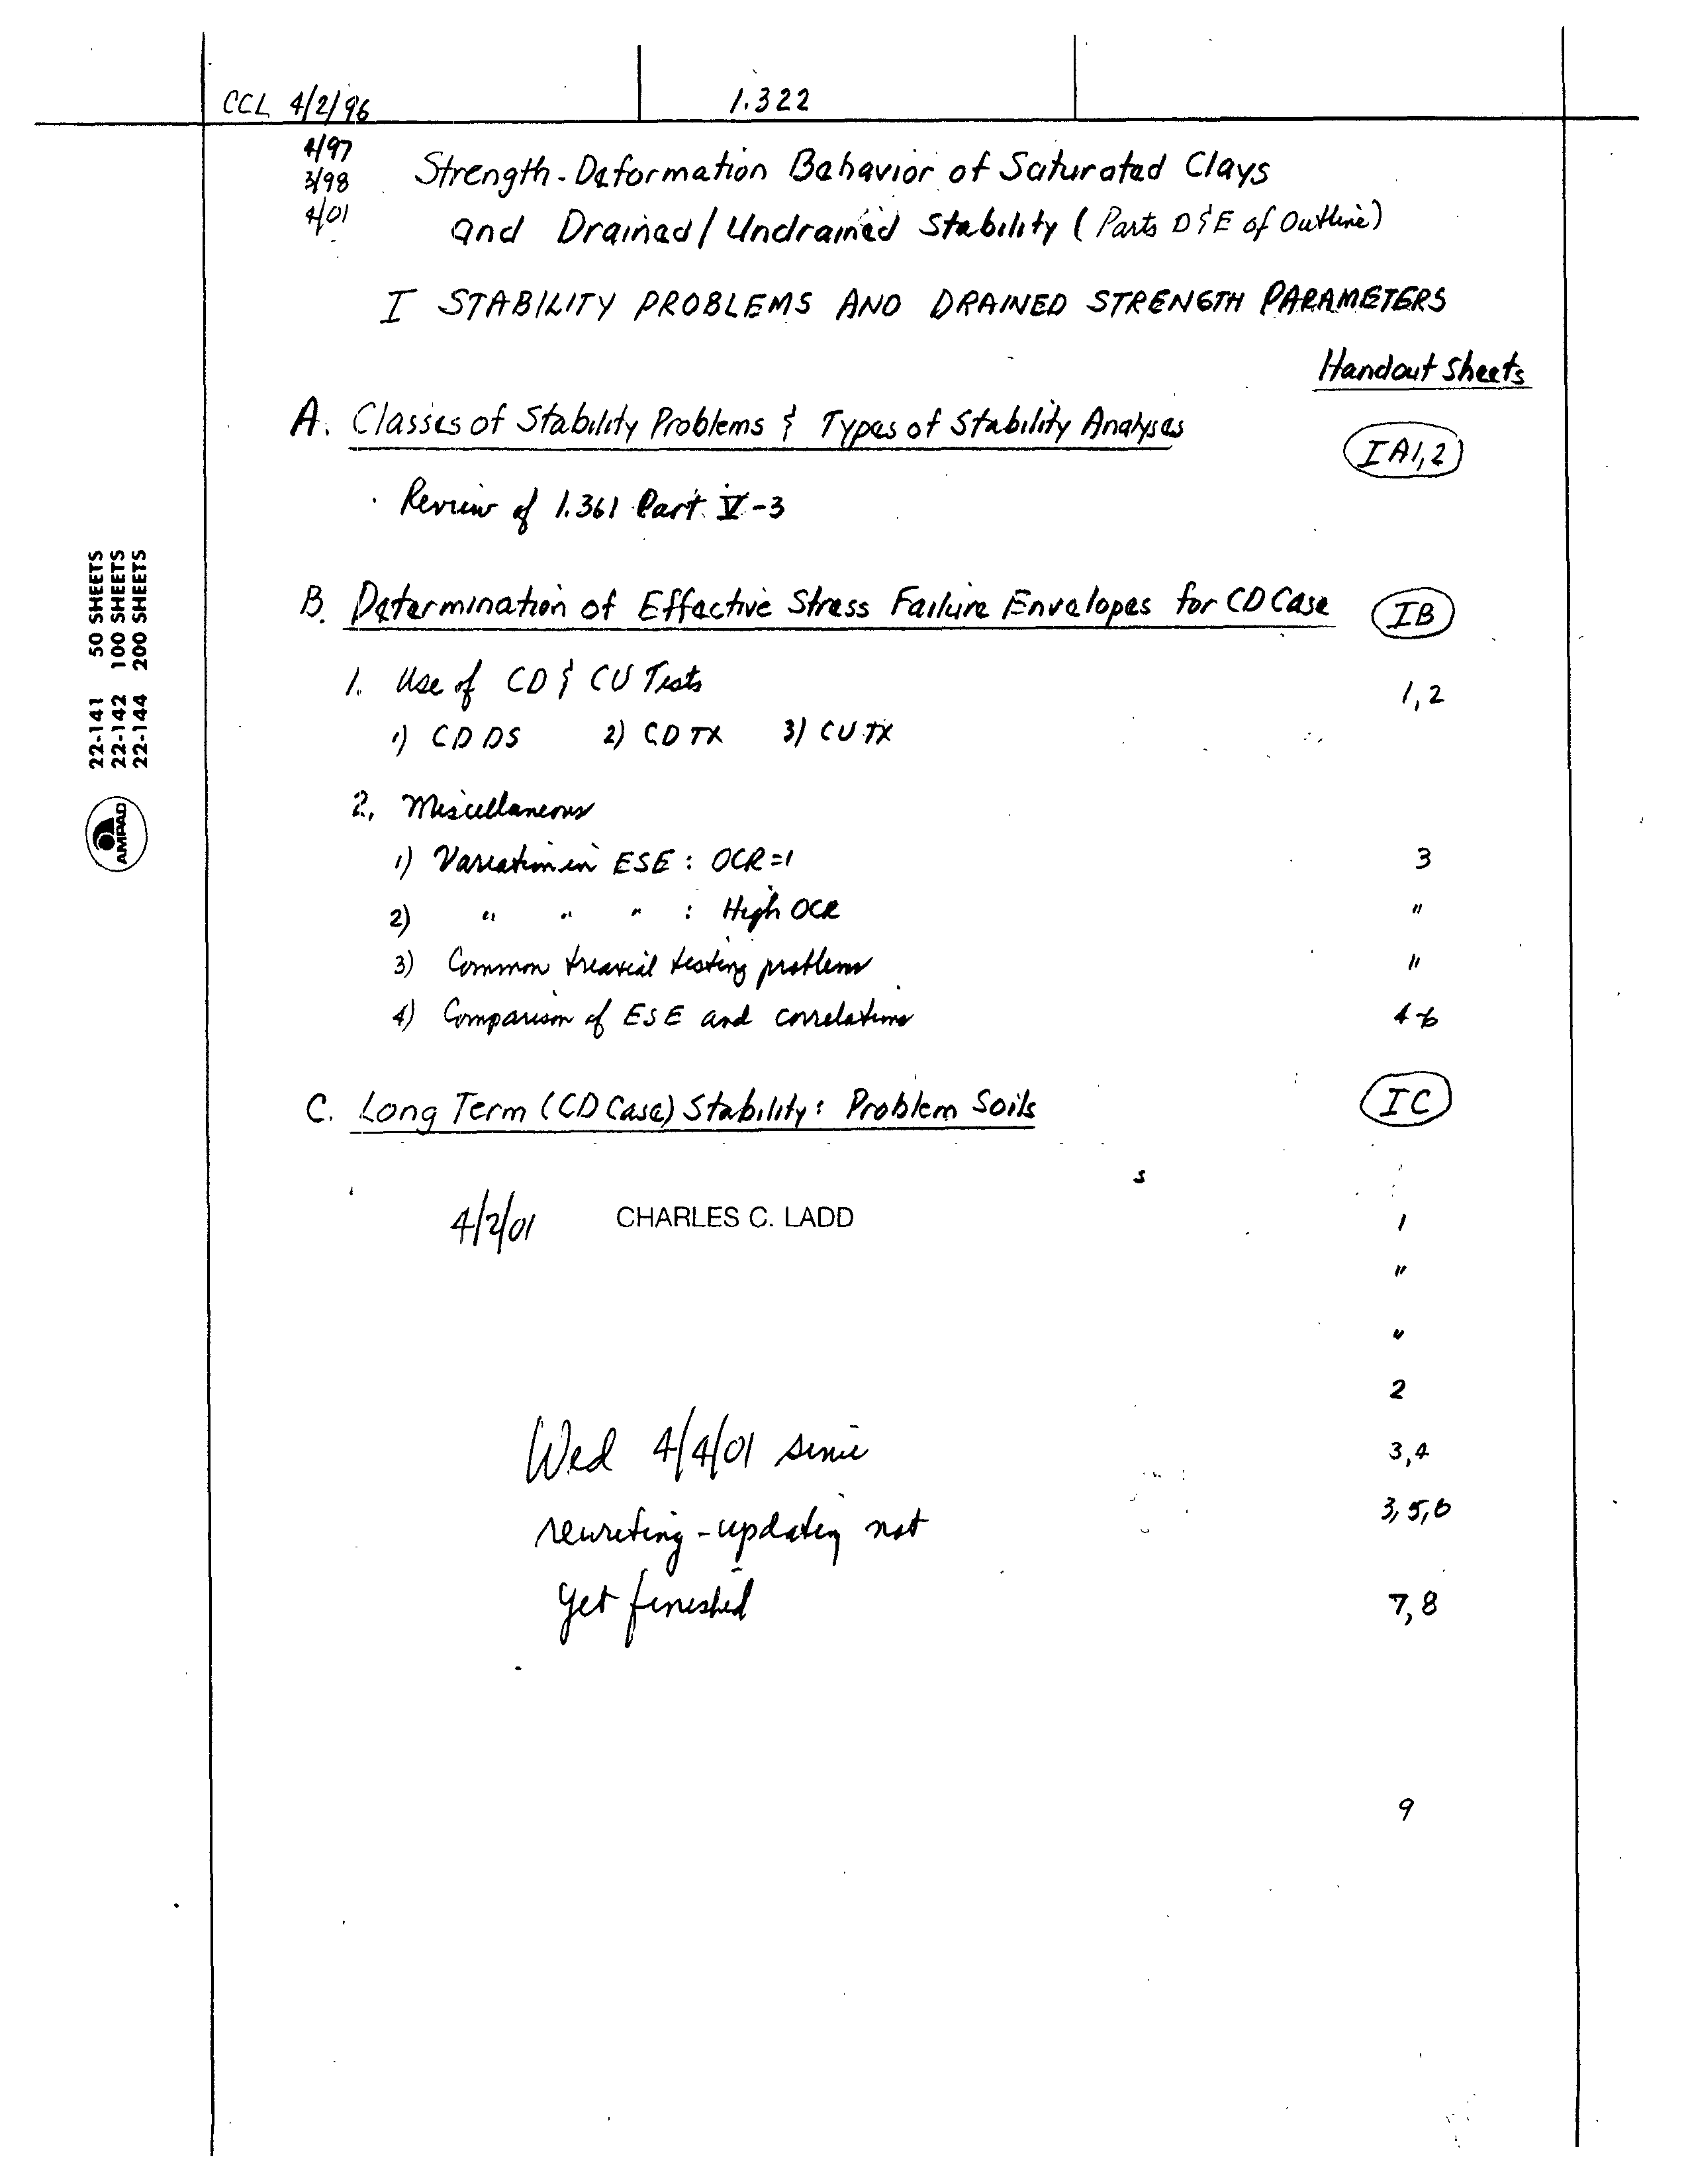 CCL 4/2/96 1.322
4/97
3/98
4/01
Strength-Deformation Behavior of Saturated Clays
and Drained/Undrained Stability (Parts D & E of Outline)
I STABILITY PROBLEMS AND DRAINED STRENGTH PARAMETERS
Handout Sheets
A. Classes of Stability Problems & Types of Stability Analyses
IA1,2
· Review of 1.361 Part V-3
B. Determination of Effective Stress Failure Envelopes for CD Case IB
1. Use of CD & CU Tests 1,2
1) CD DS 2) CD TX 3) CU TX
2. Miscellaneous
1) Variation in ESE : OCR=1 3
2) " " " : High OCR "
3) Common triaxial testing problems "
4) Comparison of ESE and correlations 4-6
C. Long Term (CD Case) Stability: Problem Soils IC
s
4/2/01 CHARLES C. LADD 1
"
"
2
Wed 4/4/01 since 3,4
rewriting-updating not 3,5,6
yet finished 7,8
9
22-141 50 SHEETS
22-142 100 SHEETS
22-144 200 SHEETS
AMPAD